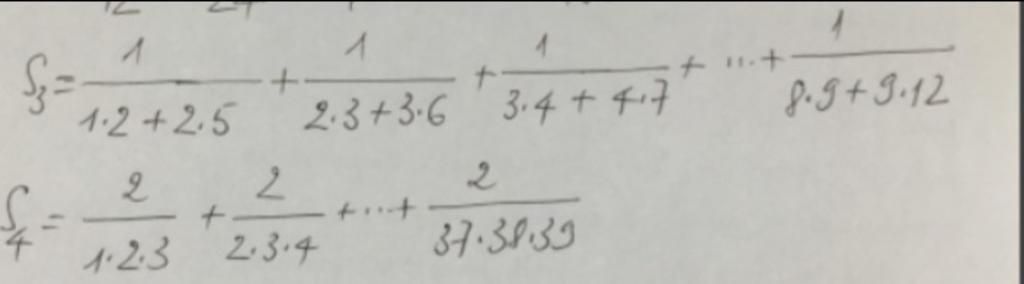 S₃ = 1/(1·2+2·5) + 1/(2·3+3·6) + 1/(3·4+4·7) + ... + 1/(8·9+9·12)
S₄ = 2/(1·2·3) + 2/(2·3·4) + ... + 2/(37·38·39)